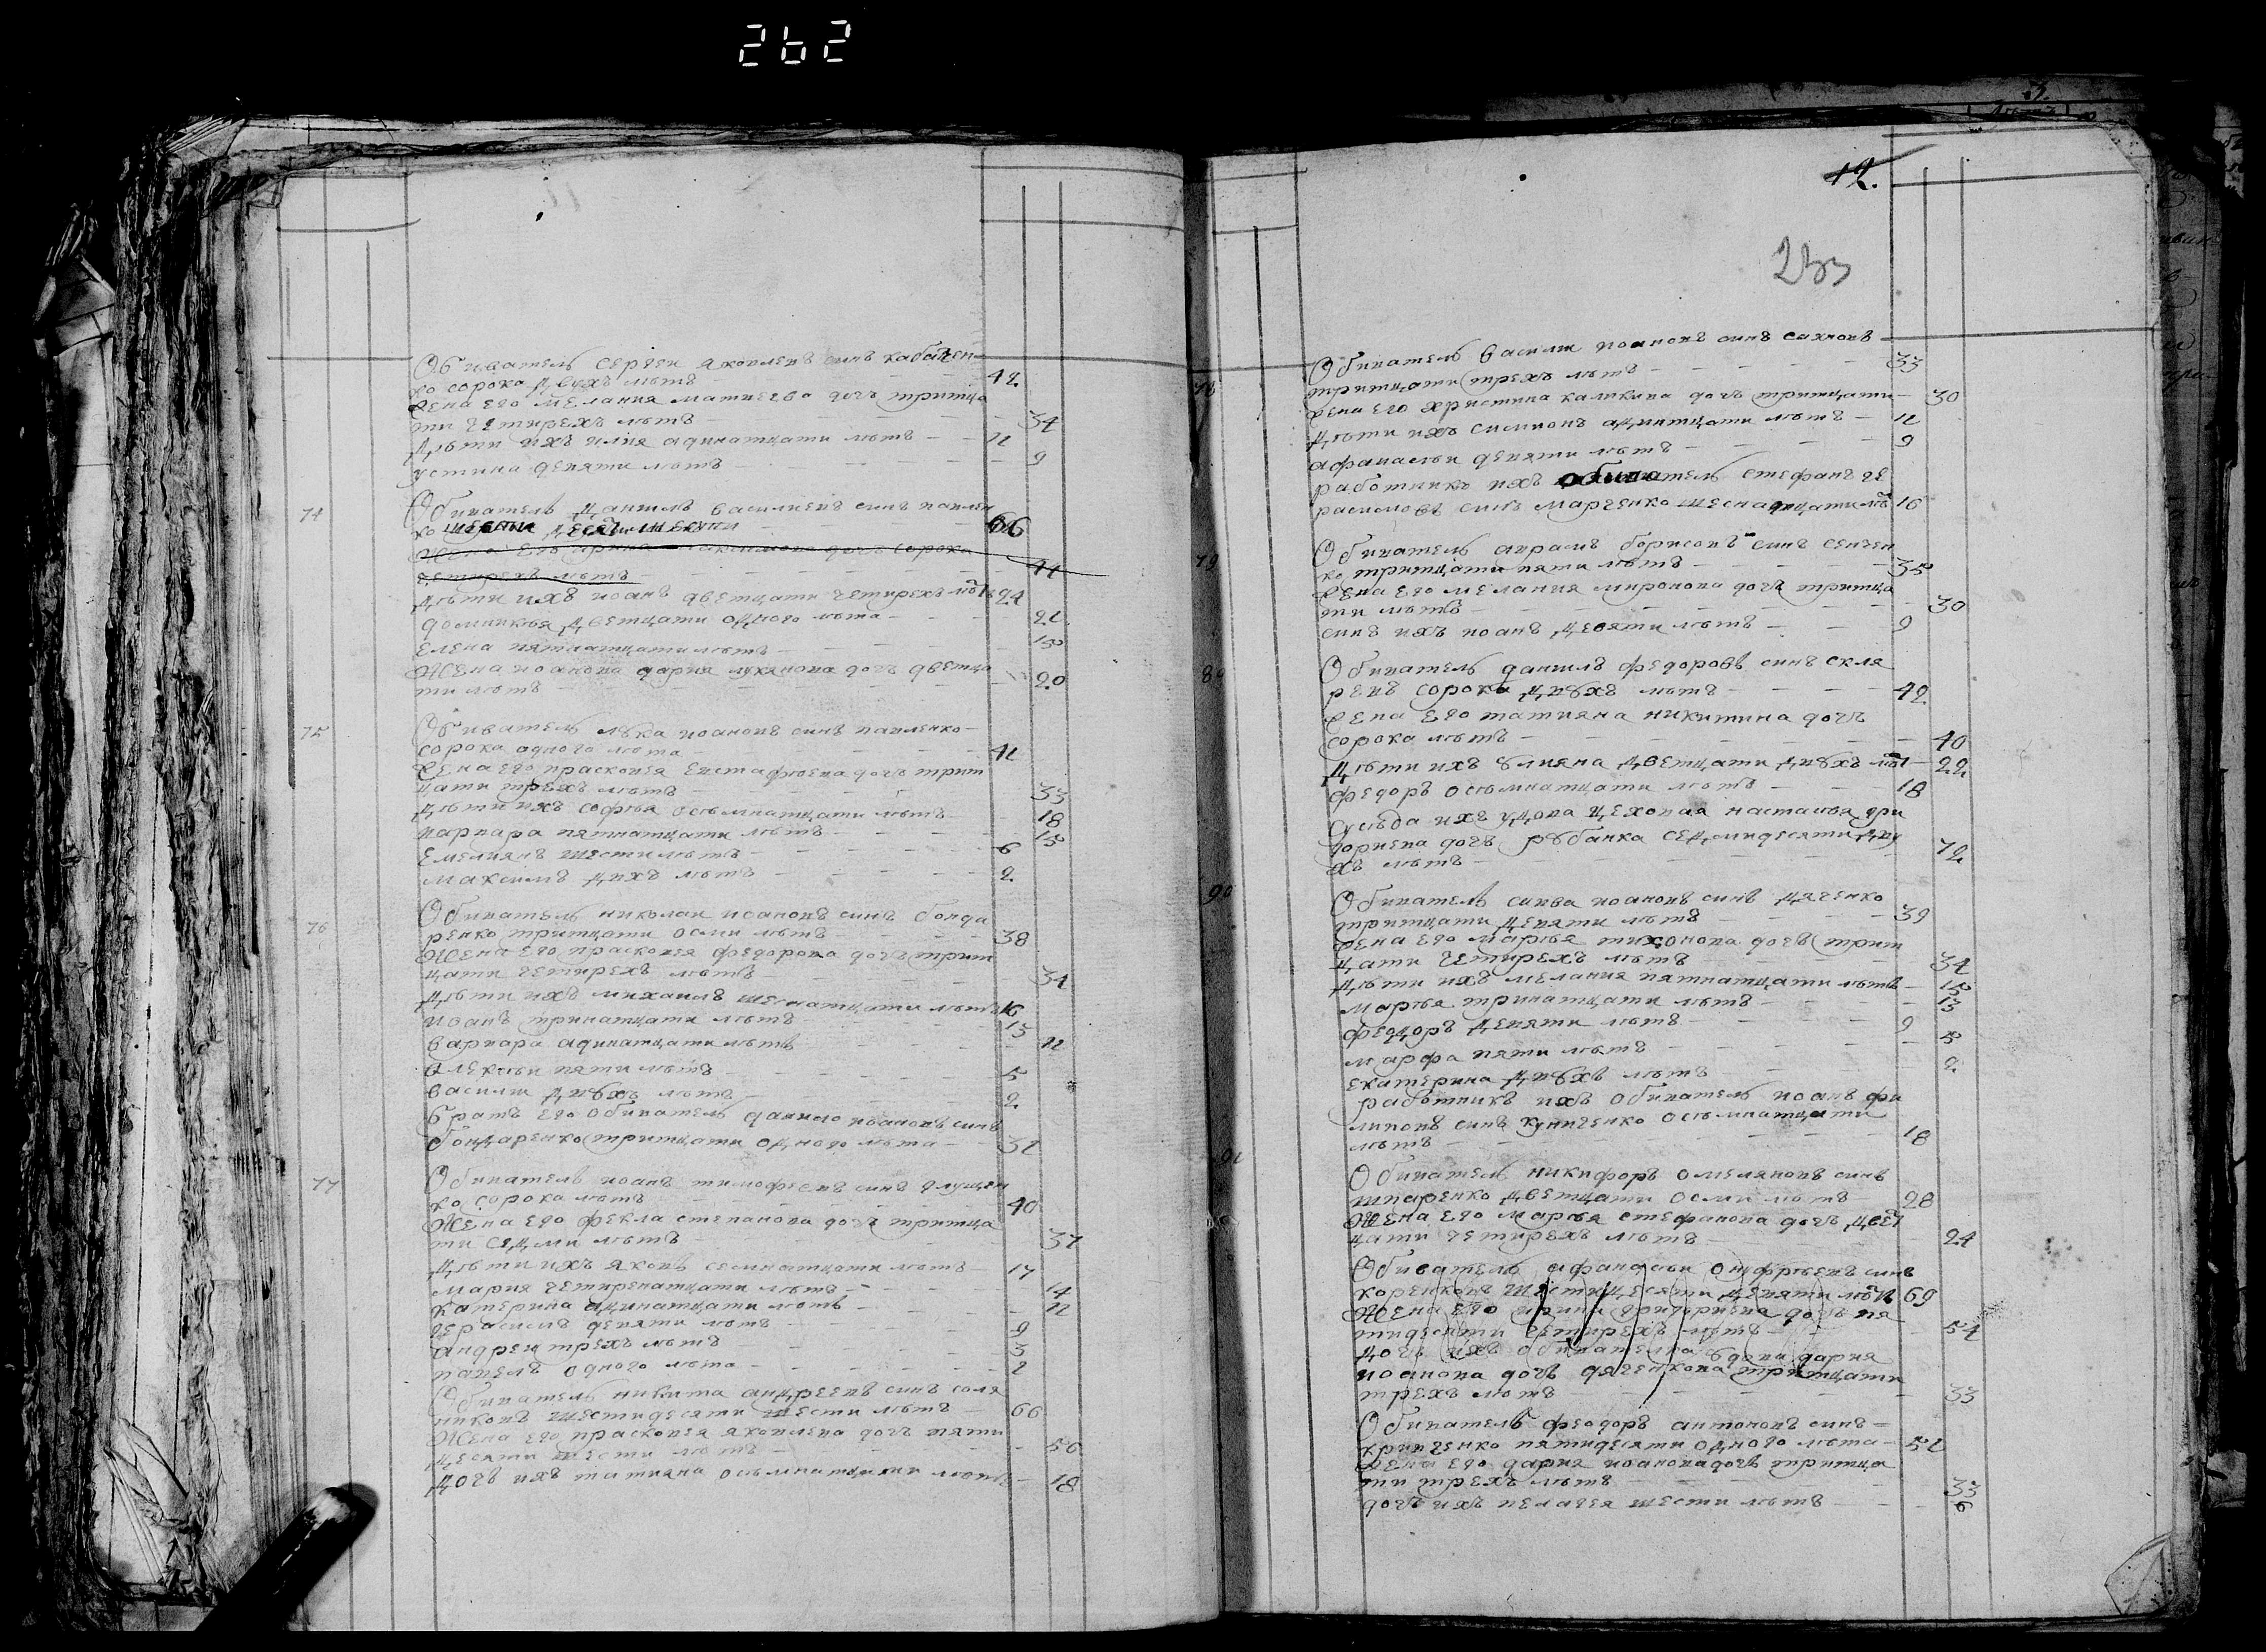 262
Обиватель Сергеи Яковлевъ синъ кабачен
ко сорока двухъ летъ 42
Жена его мелания матиева дочъ тритца
ти чтетирехъ летъ 34
Дети ихъ илия адинатцати летъ 11
устина девяти летъ 9
74 Обиватель Данилъ василиевъ синъ павлен
ко шести десяти шести 66
Жена его ирина максимова дочъ сорока
четирехъ летъ 44
Дети ихъ иоанъ дветцати четирехъ летъ 24
домникия дветцати одного лета 21
Елена пятнатцати летъ 15
Жена иоанова дария лукянова дочъ дветца
ти летъ 20
75 Обиватель лука иоановъ синъ павленко
сорока одного лета 41
Жена его прасковея Евстафиева дочъ трит
цати трехъ летъ 33
Дети ихъ софъя осъмнатцати летъ 18
варвара пятнатцати летъ 15
Емелиянъ шести летъ 6
максимъ двхъ летъ 2
76 Обиватель николаи иоановъ синъ бонда
ренко тритцати осми летъ 38
Жена его прасковея федорова дочъ трит
цати четирехъ летъ 34
Дети ихъ михаилъ шеснатцати летъ 16
иоанъ тринатцати летъ 13
варвара адинатцати летъ 11
Алексеи пяти летъ 5
василии двухъ летъ 2
братъ его обиватель данило ивановъ синъ
бондаренко тритцати одного лета 31
77 Обиватель иоанъ тимофеевъ синъ глущен
ко сорока летъ 40
Жена его фекла степанова дочъ тритца
ти седми летъ 37
Дети ихъ яковъ семнатцати летъ 17
мария четиренатцати летъ 14
катерина адинатцати летъ 11
герасимъ девяти летъ 9
андреи трехъ летъ 3
павелъ одного лета 1
Обиватель никита андреевъ синъ соля
никовъ шестидесяти шести летъ 66
Жена его прасковея яковлева дочъ пяти
десяти шести летъ 56
дочъ ихъ татияна осъмнатцати летъ 18
12.
233
78 Обиватель василии иоановъ синъ сахновъ
тритцати трехъ летъ 33
Жена его христина каликина дочъ тритцати 30
Дети ихъ симионъ адинтцати летъ 11
афанасеи девяти летъ 9
работникъ ихъ обиватель стефанъ ге
расимовъ синъ марченко шеснатцати летъ 16
79 Обиватель аврамъ борисовъ синъ сенчен
ко тритцати пяти летъ 35
Жена его мелания миронова дочъ тритца
ти летъ 30
синъ ихъ иоанъ девяти летъ 9
Обиватель данилъ федоровъ синъ скля
ревъ сорока двухъ летъ 42
Жена его татияна никитина дочъ
сорока летъ 40
Дети ихъ улияна дветцати двухъ летъ 22
федоръ осъмнатцати летъ 18
Суседа ихъ удова цеховая настасъя гри
гориева дочъ рубанка седмидесяти дву
хъ летъ 72
90 Обиватель савва иоановъ синъ дяченко
тритцати девяти летъ 39
Жена его маръя тихонова дочъ трит
цати четирехъ летъ 34
Дети ихъ мелания пятнатцати летъ 15
маръя тринатцати летъ 13
федоръ девяти летъ 9
марфа пяти летъ 5
екатерина двухъ летъ 2
работникъ ихъ обиватель иоанъ фи
липовъ синъ куниченко осъмнатцати
летъ 18
91 Обиватель никифоръ омеляновъ синъ
шпаренко дветцати осми летъ 28
Жена его маръя стефанова дочъ двет
цати четирехъ летъ 24
Обиватель афанасеи онуфриевъ синъ
коренковъ шестидесяти девяти летъ 69
Жена его ирина григориева дочъ пя
тидесяти четирехъ летъ 54
дочъ ихъ обивателка удова дария
иоанова дочъ дяченкова тритцати
трехъ летъ 33
Обиватель феодоръ антоновъ синъ
кривченко пятидесяти одного лета 51
Жена его дария иоанова дочъ тритца
ти трехъ летъ 33
дочъ ихъ пелагея шести летъ 6